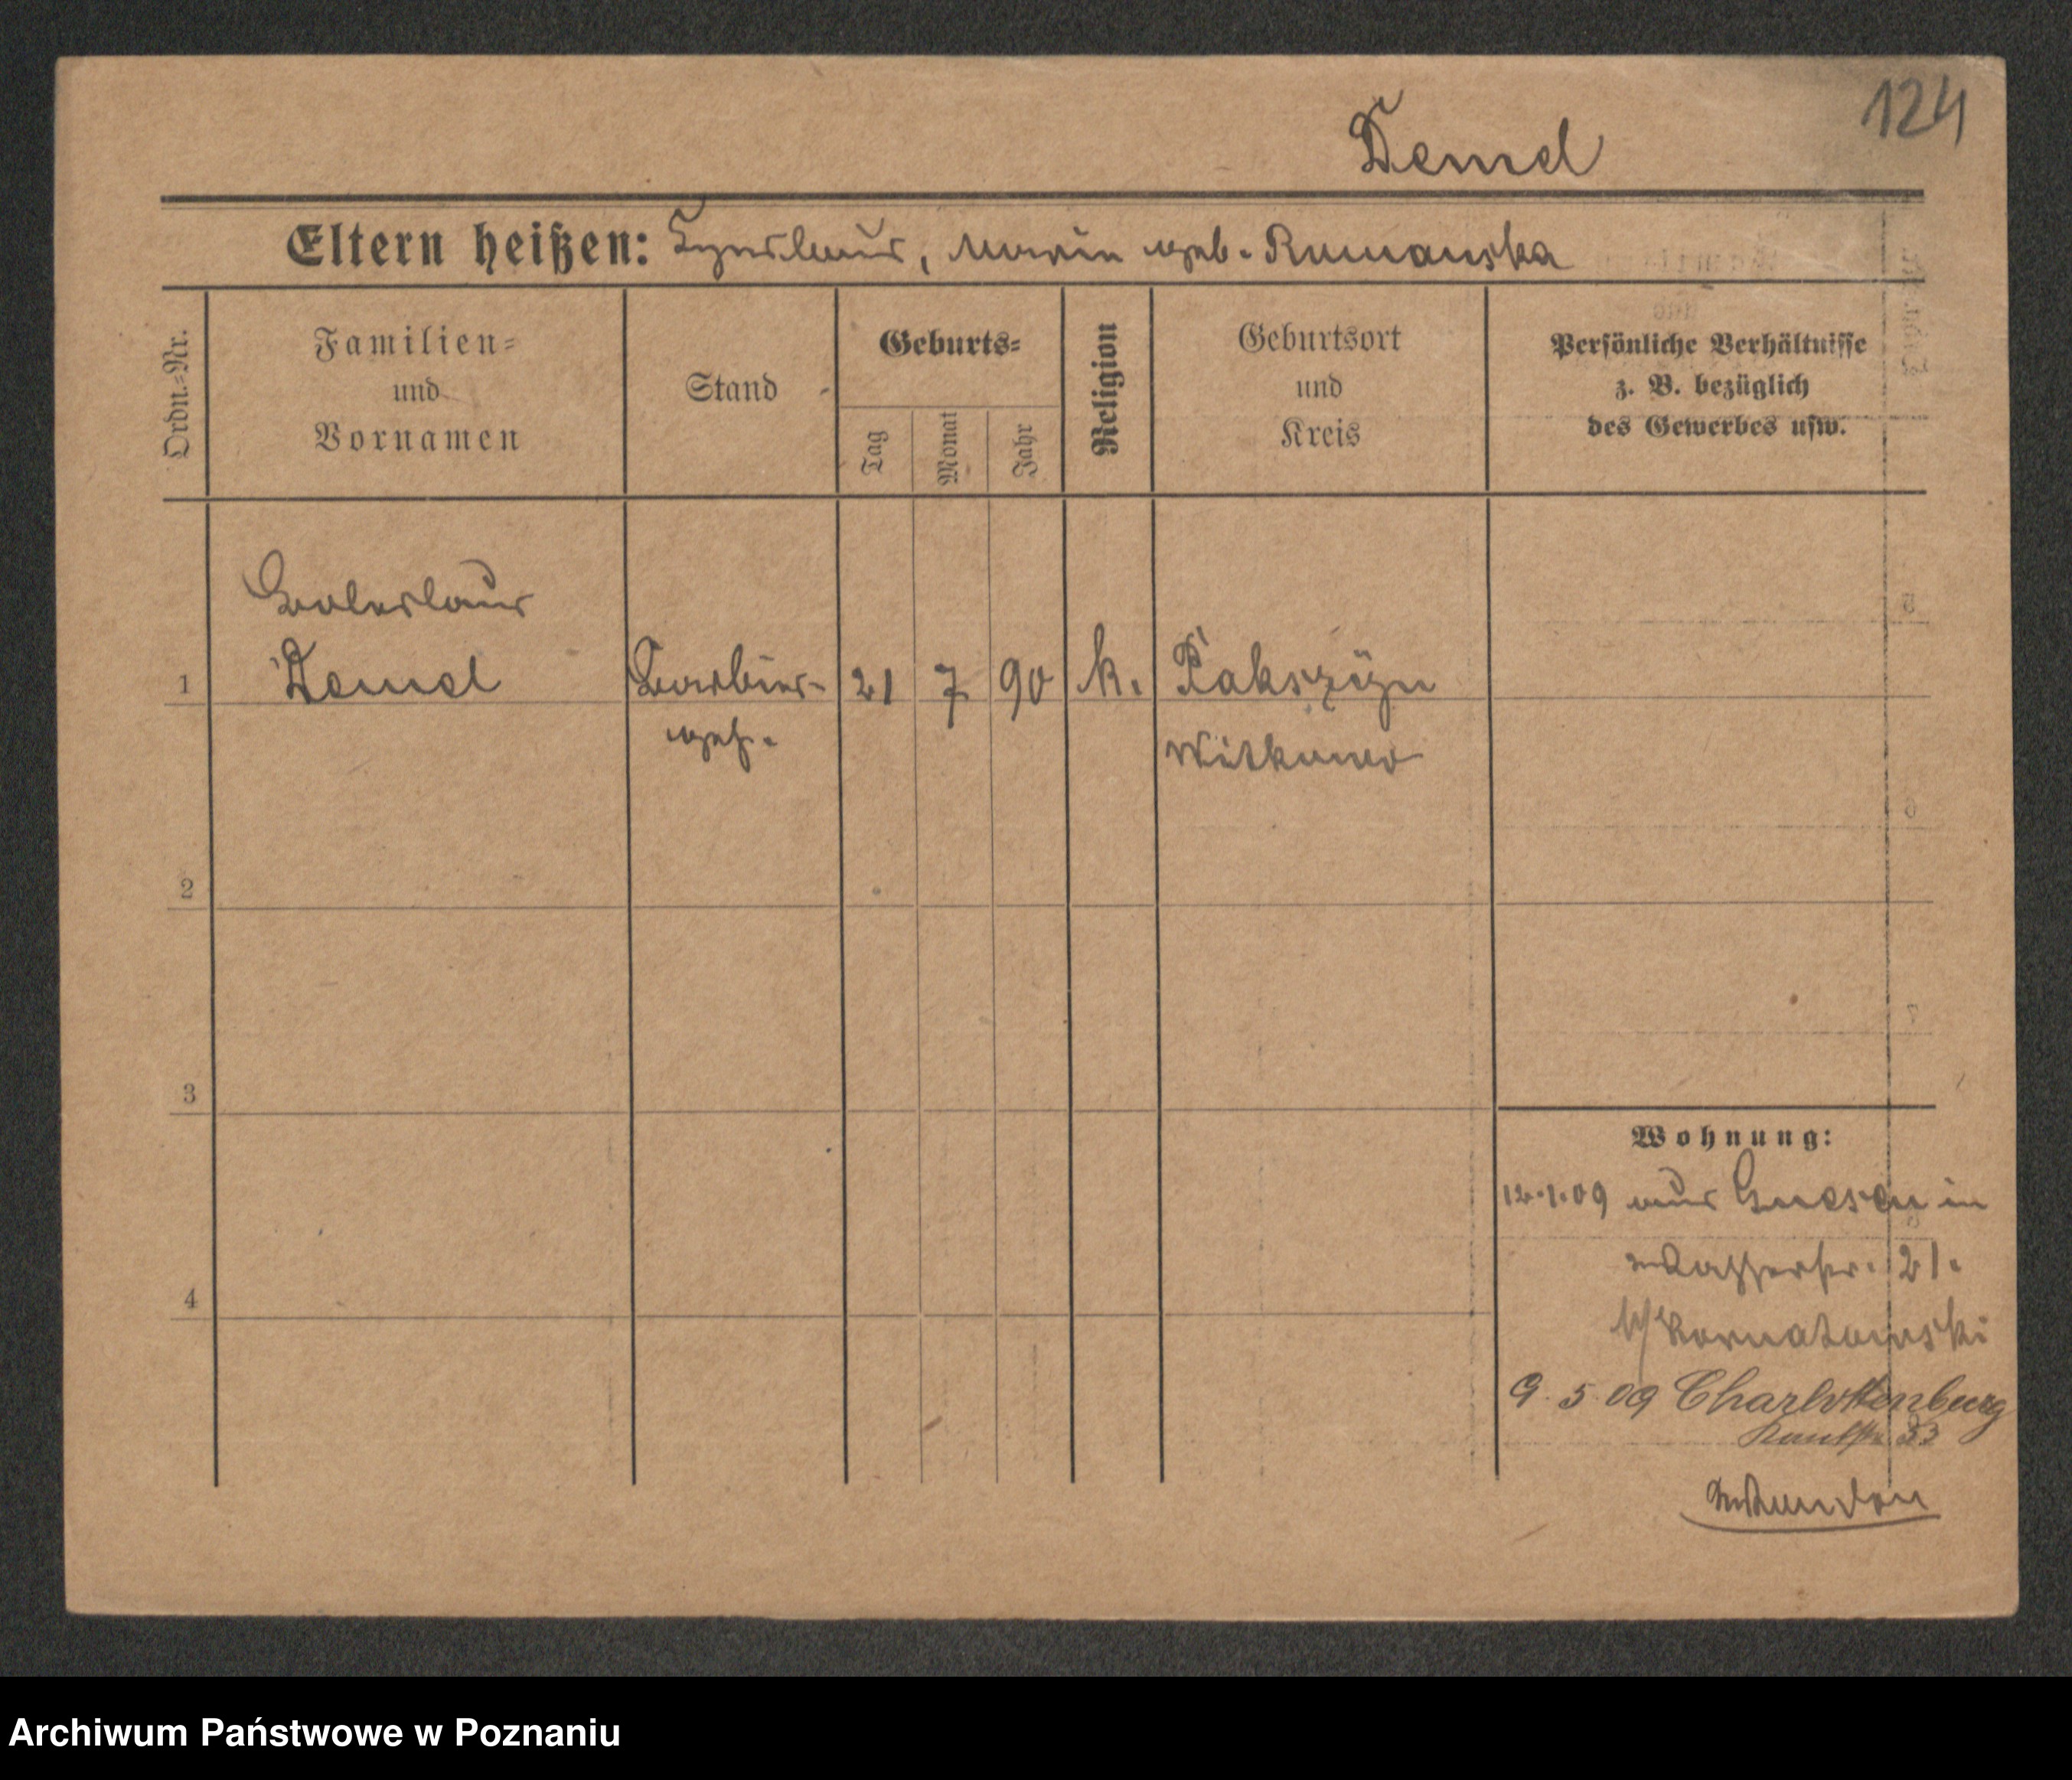 124
Demel
Eltern heißen: Maria geb. Rumanska
Ordn.-Nr.
Familien-
und
Vornamen
Stand
Geburts-
Tag
Monat
Jahr
Religion
Geburtsort
und
Kreis
Persönliche Verhältnisse
z. B. bezüglich
des Gewerbes usw.
Boleslaus
1 Demel Barbier- 21 7 90 k.
geh. Witkowo
2
3
4
Wohnung:
12.1.09 aus Gnesen in
Wasserstr. 21.
b/ Kornatowski
9.5.09 Charlottenburg
Kantstr. 33
Archiwum Państwowe w Poznaniu